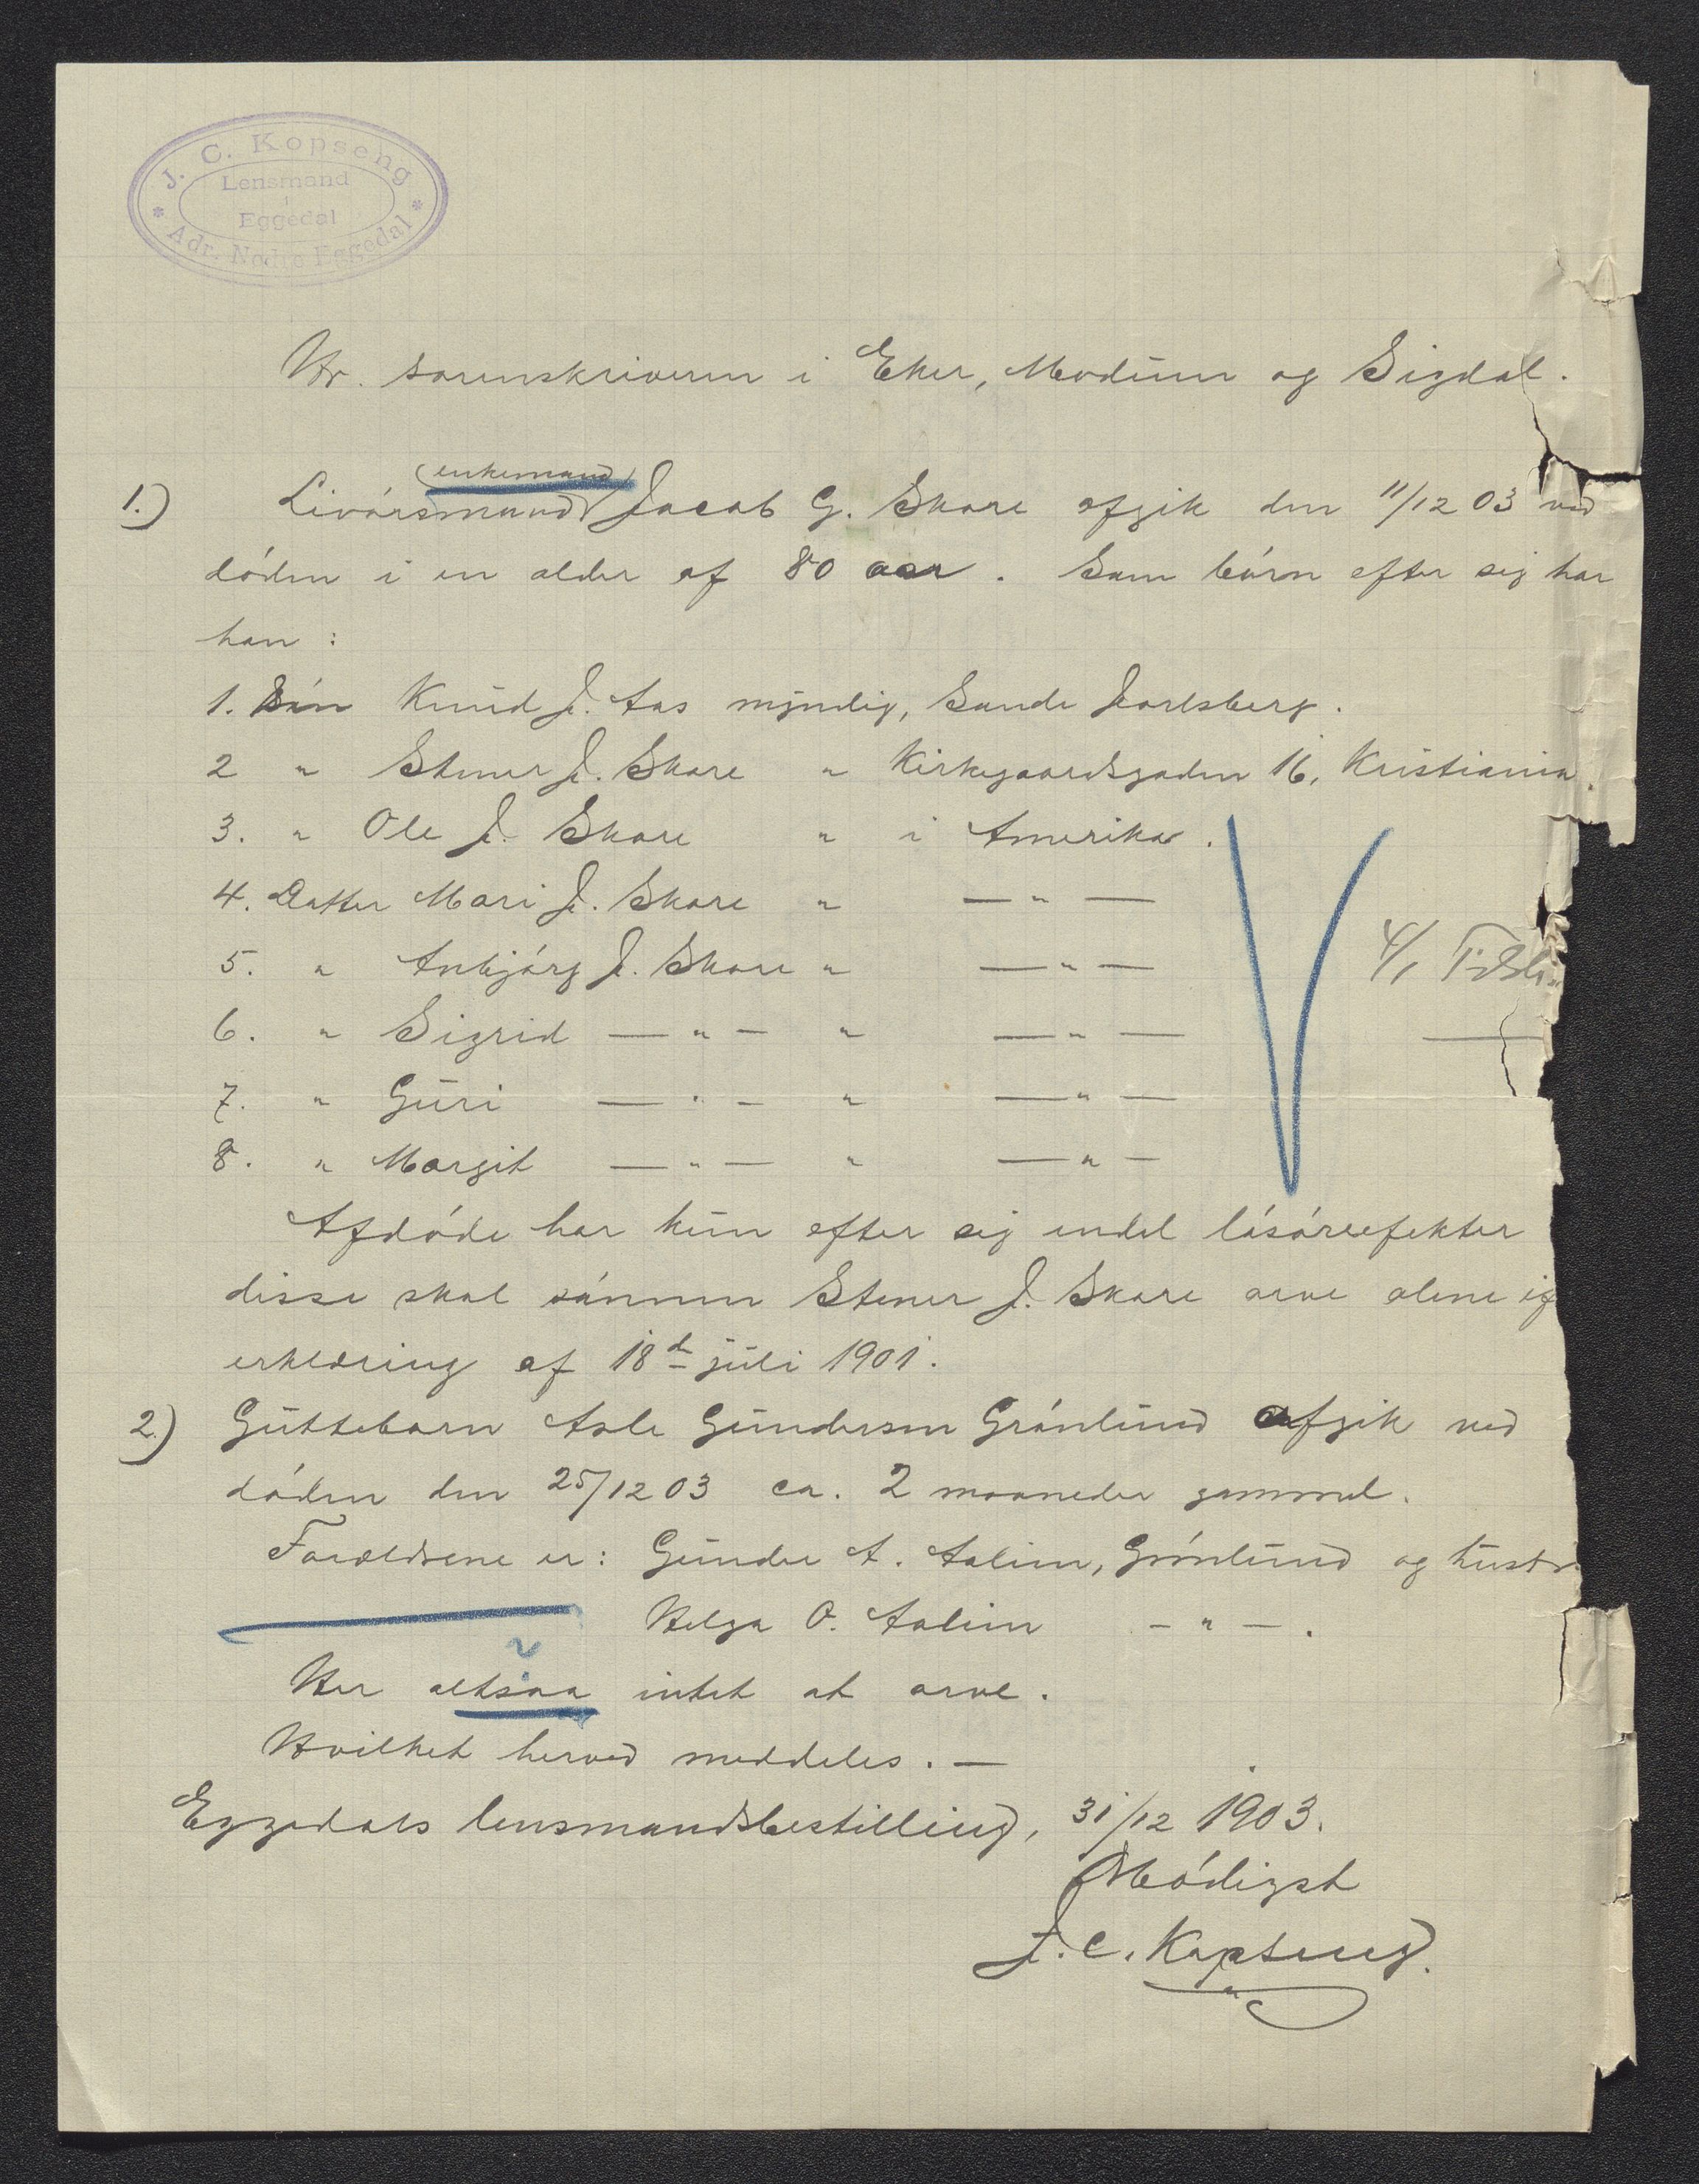 J. C. Kopseng
Lensmand
i
Eggedal
* Adr. Nedre Eggedal *
Hr. sorenskriveren i Eker, Modum og Sigdal.
(enkemand)
1.) Livörsmand Jacob G. Skare afgik den 11/12 03 ved
döden i en alder af 80 aar. Som börn efter sig har
han:
1. Sön Knud J. Aas myndig, Sande Jarlsberg.
2 " Stener J. Skare " Kirkegaardsgaden 16, Kristiania.
3. " Ole J. Skare " i Amerika.
4. Datter Mari J. Skare " — " —
5. " Anbjörg J. Skare " — " —
4/1
6. " Sigrid — " — " — " —
7. " Guri — " — " — " —
8. " Margit — " — " — " —
Afdöde har kun efter sig endel lösöreefekter
disse skal sönnen Stener J. Skare arve alene
erklæring af 18d juli 1901.
2.) Guttebarn Asle Gundersen Grönlund afgik ved
döden den 25/12 03 ca. 2 maaneder gammel.
Forældrene er: Gunder A. Aslien, Grönlund og hustr
Helga O. Aslien — " — .
Her altsaa intet at arve.
Hvilket herved meddeles. —
Eggedals lensmandsbestilling, 31/12 1903.
Ærbödigst
J. C. Kopseng.